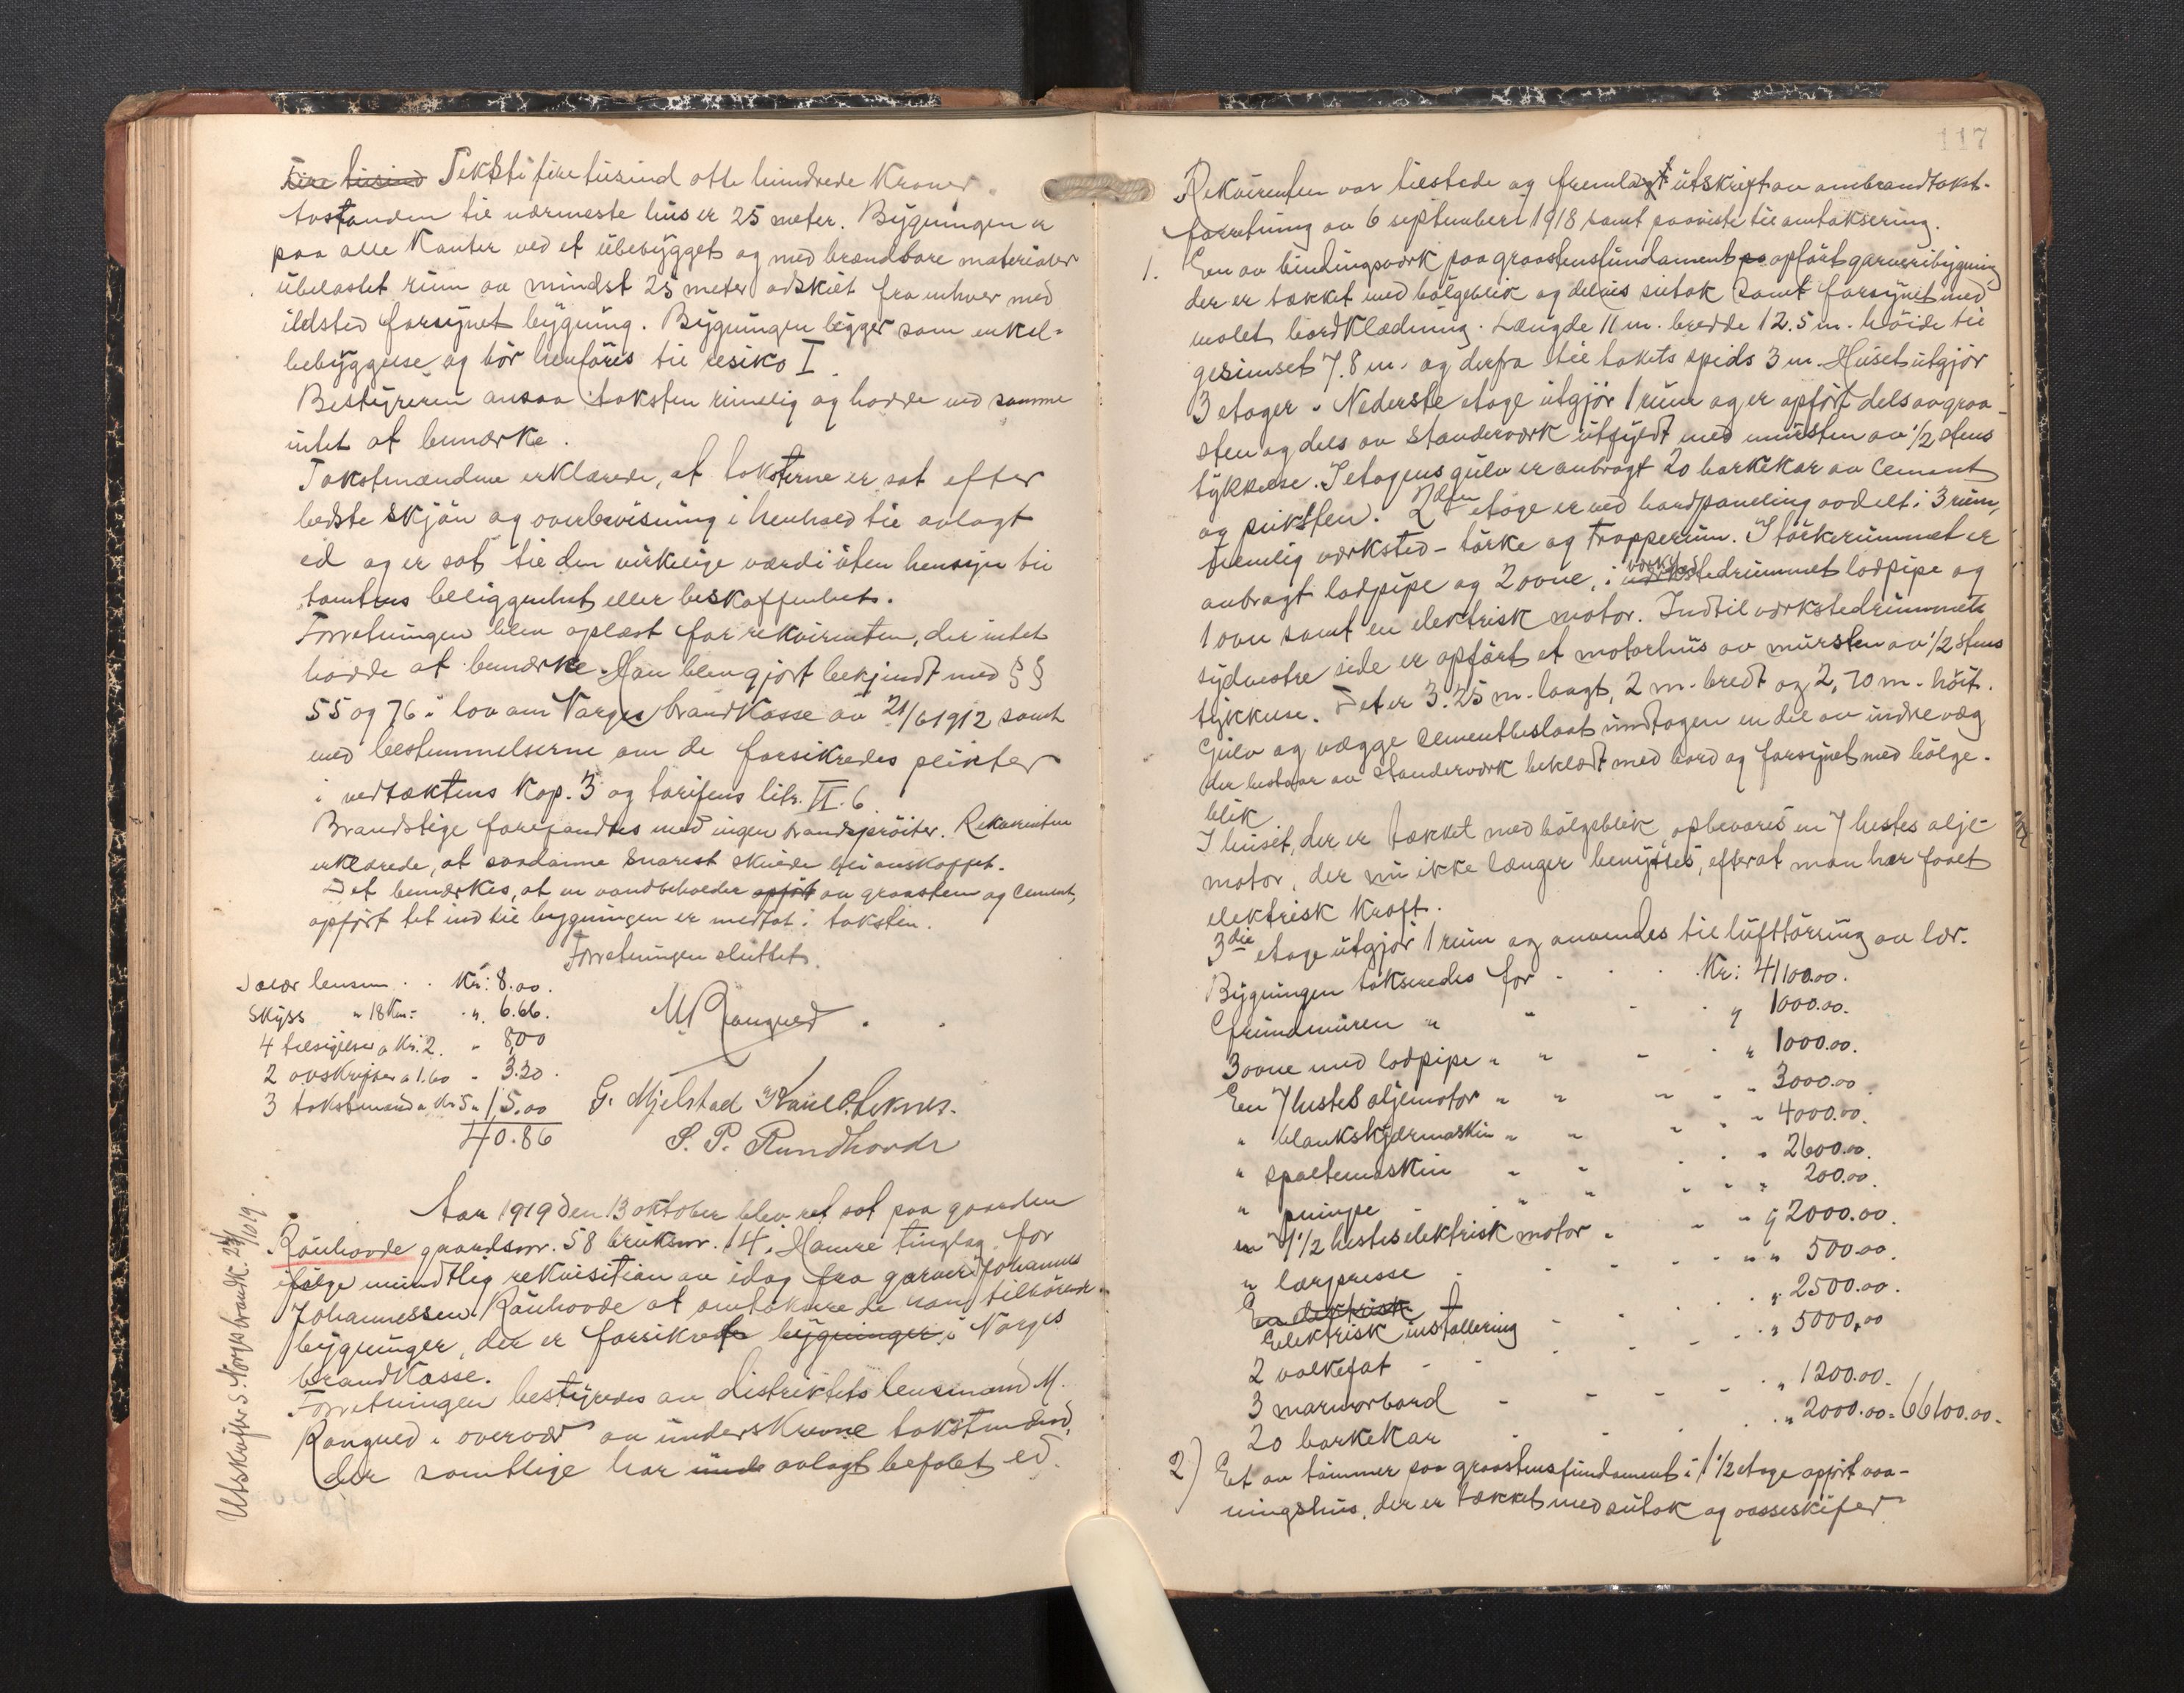 Fire tusind Sekstifiretusind otte hundrede Kroner.
Avstanden til nærmeste hus er 25 meter. Bygningen er
paa alle Kanter ved et ubebygget og med brændbare materialer
ubelastet rum av mindst 25 meter adskilt fra enhver med
ildsted forsynet bygning. Bygningen ligger som enkel-
bebyggelse og bör henföres til risiko I.
Bestyreren ansaa taksten rimelig og hadde ved samme
intet at bemærke.
Takstmændene erklærede, at taksterne er sat efter
bedste skjön og overbevisning i henhold til avlagt
ed og er sat til den virkelige værdi uten hensyn til
tomtens beliggenhet eller beskaffenhet.
Forretningen blev oplæst for rekvirenten, der intet
hadde at bemærke. Han blev gjort bekjendt med §§
55 og 76 i lov om Norges brandkasse av 21/6 1912 samt
med bestemmelserne om de forsikredes plikter
i vedtæktens Kap. 3 og tarifens litr. II. 6.
Brandstige forefandtes med ingen brandspröiter. Rekvirenten
erklærede, at saadanne snarest skulde bli anskaffet.
Det bemærkes, at en vandbeholder opfört av graasten og cement,
opfört tet ind til bygningen er medtat i taksten.
Forretningen sluttet.
Salær lensm. . . Kr: 8.00.
Skyss " 18 Km = . ". 6.66.
4 tilsigelser a Kr. 2. " 8,00
2 avskrifter a 1.60 " 3.20.
3 takstmænd a Kr 5 " 15.00
40.86
M Rongved
G. Mjelstad Karl O. Leknes.
S. P. Rundhovde
Aar 1919 den 13 oktober blev ret sat paa gaarden
Rauhovde gaardsnr. 58 bruksnr. 14 i Hamre tinglag for
ifölge mundtlig rekvisition av idag fra garver Johannes
Johannessen Rauhovde at omtaksere de ham tilhörende
bygninger, der er forsikrede bygninger i Norges
brandkasse.
Forretningen bestyredes av distriktets lensmand M.
Rongved i overvær av underskrevne takstmænd,
der samtlige har unde avlagt befalet ed.
Utskrifter S. Norges brandk. 23/10 19.
117
Rekvirenten var tilstede og fremlagt utskrift av ombrandtakst-
forretning av 6 september 1918 samt paaviste til omtaksering.
1. En av bindingsverk paa graastensfundament pa opfört garveribygning
der er tækket med bölgeblik og delvis sutak samt forsynet med
malet bordklædning. Længde 11 m. bredde 12.5 m. höide til
gesimset 7.8 m. og derfra til takets spids 3 m. Huset utgjör
3 etager. Nederste etage utgjör 1 rum og er opfört dels av graa-
sten og dels av standerværk utfyldt med mursten av 1/2 stens
tykkelse. I etagens gulv er anbragt 20 barkekar av cement
og puksten. 2den etage er ved bordpaneling avdelt i 3 rum,
nemlig værksted- törke og trapperum. I törkerummet er
anbragt lodpipe og 2 ovne, i værkstedrummet lodpipe og
1 ovn samt en elektrisk motor. Indtil værkstedrummets
sydvestre side er opfört et motorhus av mursten av 1/2 stens
tykkelse. Det er 3.25 m. langt, 2 m. bredt og 2,70 m. höit.
Gulv og vægge cementbeslaat undtagen en del av indre væg
der bestaar av standerværk beklædt med bord og forsynet med bölge-
blik.
I huset, der er tækket med bölgeblik, opbevares en 7 hestes olje-
motor, der nu ikke længer benyttes, efterat man har faaet
elektrisk kraft.
3die etage utgjör 1 rum og anvendes til lufttörring av lær.
Bygningen takseredes for . . . Kr: 41100.00.
Grundmuren " " - . " 1000.00.
3 ovne med lodpipe " " - . " 1000.00.
En 7 hestes oljemotor " " - - " 3000.00.
" blankskjærmaskin " " - . " 4000.00.
" spaltemaskin " " . . " 2600.00.
" pumpe - " " - - " 200.00.
en 7 1/2 hestes elektrisk motor " - - " 2000.00.
" lærpresse - - - " " 500.00.
En elektrisk
Elektrisk installering - . . " 2500.00.
2 valkefat - - - - " 5000,00
3 marmorbord - - - - " 1200.00.
20 barkekar - . . " 2000.00 = 66100.00.
2) Et av tömmer paa graastensfundament i 1 1/2 etage opfört vaa-
ningshus, der er tækket med sutak og vosseskifer